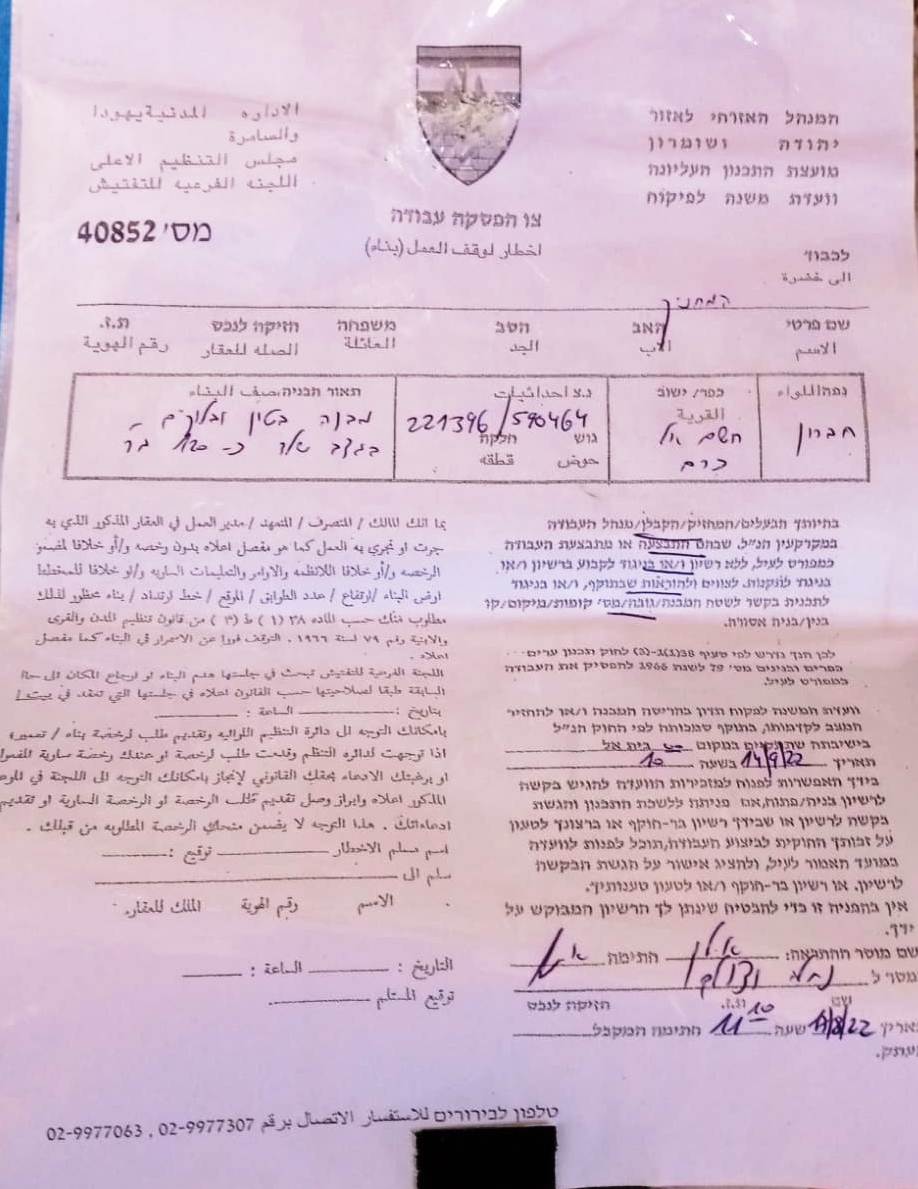 המנהל האזרחי לאזור
יהודה ושומרון
מועצת התכנון העליונה
וועדת משנה לפיקוח
الاداره المدنية يهودا
والسامرة
مجلس التنظيم الاعلى
اللجنه الفرعيه للتفتيش
צו הפסקת עבודה
اخطار لوقف العمل (بناء)
מס' 40852
לכבוד
الى حضرة
המחזיק
שם פרטי האב הסב משפחה חזיקה לנכס ת.ז.
الاسم الاب الجد العائلة الصله للعقار رقم الهوية
נפה/اللواء כפר/ ישוב נ.צ احداثيات תאור הבניה/صف البناء
القرية
חברון חשם אל כרם 221396/590464 מבנה בטון ובלוקים
גוש חלקה
حوض قطعه
כ- 120 מ"ר
בהיותך הבעלים/המחזיק/הקבלן/מנהל העבודה
במקרקעין הנ"ל, שבהם התבצעה או מתבצעת העבודה
כמפורט לעיל, ללא רשיון ו/או בניגוד לקבוע ברשיון ו/או
בניגוד לתקנות, לצווים ולהוראות שבתוקף, ו/או בניגוד
לתכנית בקשר לשטח המבנה/גובה/מס' קומות/מיקום/קו
בנין/בניה אסורה.
לכן הנך נדרש לפי סעיף 38(1) לחוק תכנון ערים
הכפרים ובנינים מס' 79 לשנת 1966 להפסיק את העבודה
כמפורט לעיל.
וועדת המשנה לפקוח תדון בהריסת המבנה ו/או להחזיר
המצב לקדמותו, בתוקף סמכותה לפי החוק הנ"ל
בישיבתה שתתקיים במקום בית אל
תאריך 14/9/22 בשעה 10
בידך האפשרות לפנות למזכירות הוועדה להגיש בקשה
לרשיון בניה/פתוח, אם פנית ללשכת התכנון והגשת
בקשה לרשיון או שבידך רשיון בר-תוקף או ברצונך לטעון
על זכותך החוקית לביצוע העבודה, תוכל לפנות לוועדה
במועד האמור לעיל, ולהציג אישור על הגשת הבקשה
לרשיון, או רשיון בר-תוקף ו/או לטעון טענותיך.
אין בהפניה זו כדי להבטיח שינתן לך הרשיון המבוקש על
ידך.
שם מוסר ההתראה: חתימה
נמסר ל
שם ת.ז. חזיקה לנכס
תאריך 17/8/22 שעה 11 10 חתימת המקבל
העתק.
بما انك المالك / المتصرف / المتعهد / مدير العمل في العقار المذكور الذي به
جرت او تجري به العمل كما هو مفصل اعلاه بدون رخصه و/أو خلافا لمضمون
الرخصه و/أو خلافا للانظمه والاوامر والتعليمات الساريه و/او خلافا للمخطط
ارض البناء / ارتفاع / عدد الطوابق / الموقع / خط ارتداد / بناء محظور لذلك
مطلوب منك حسب الماده ٣٨ (١) من قانون تنظيم المدن والقرى
والابنية رقم ٧٩ لسنة ١٩٦٦ . التوقف فورا عن الاستمرار في البناء كما مفصل
اعلاه .
اللجنة الفرعية للتفتيش تبحث في جلستها هدم البناء او ارجاع المكان الى حالته
السابقة طبقا لصلاحيتها حسب القانون اعلاه في جلستها التي تنعقد في بيت ا
بتاريخ : الساعة :
بامكانك التوجه الى دائرة التنظيم اللوائيه وتقديم طلب لرخصة بناء / تعمير؛
اذا توجهت لدائره التنظيم وقدمت طلب لرخصة او عندك رخصة سارية المفعول
او برغبتك الادعاء بحقك القانوني لإنجاز بامكانك التوجه الى اللجنة في الموعد
المذكور اعلاه وابراز وصل تقديم طلب الرخصة او الرخصة السارية او تقديم
ادعاءاتك . هذا التوجه لا يضمن منحك الرخصة المطلوبه من قبلك .
اسم مسلم الاخطار توقيع :
سلم الى
الاسم رقم الهوية الملك للعقار
التاريخ : الساعة :
توقيع المستلم
טלפון לבירורים للاستفسار الاتصال برقم 02-9977307 , 02-9977063